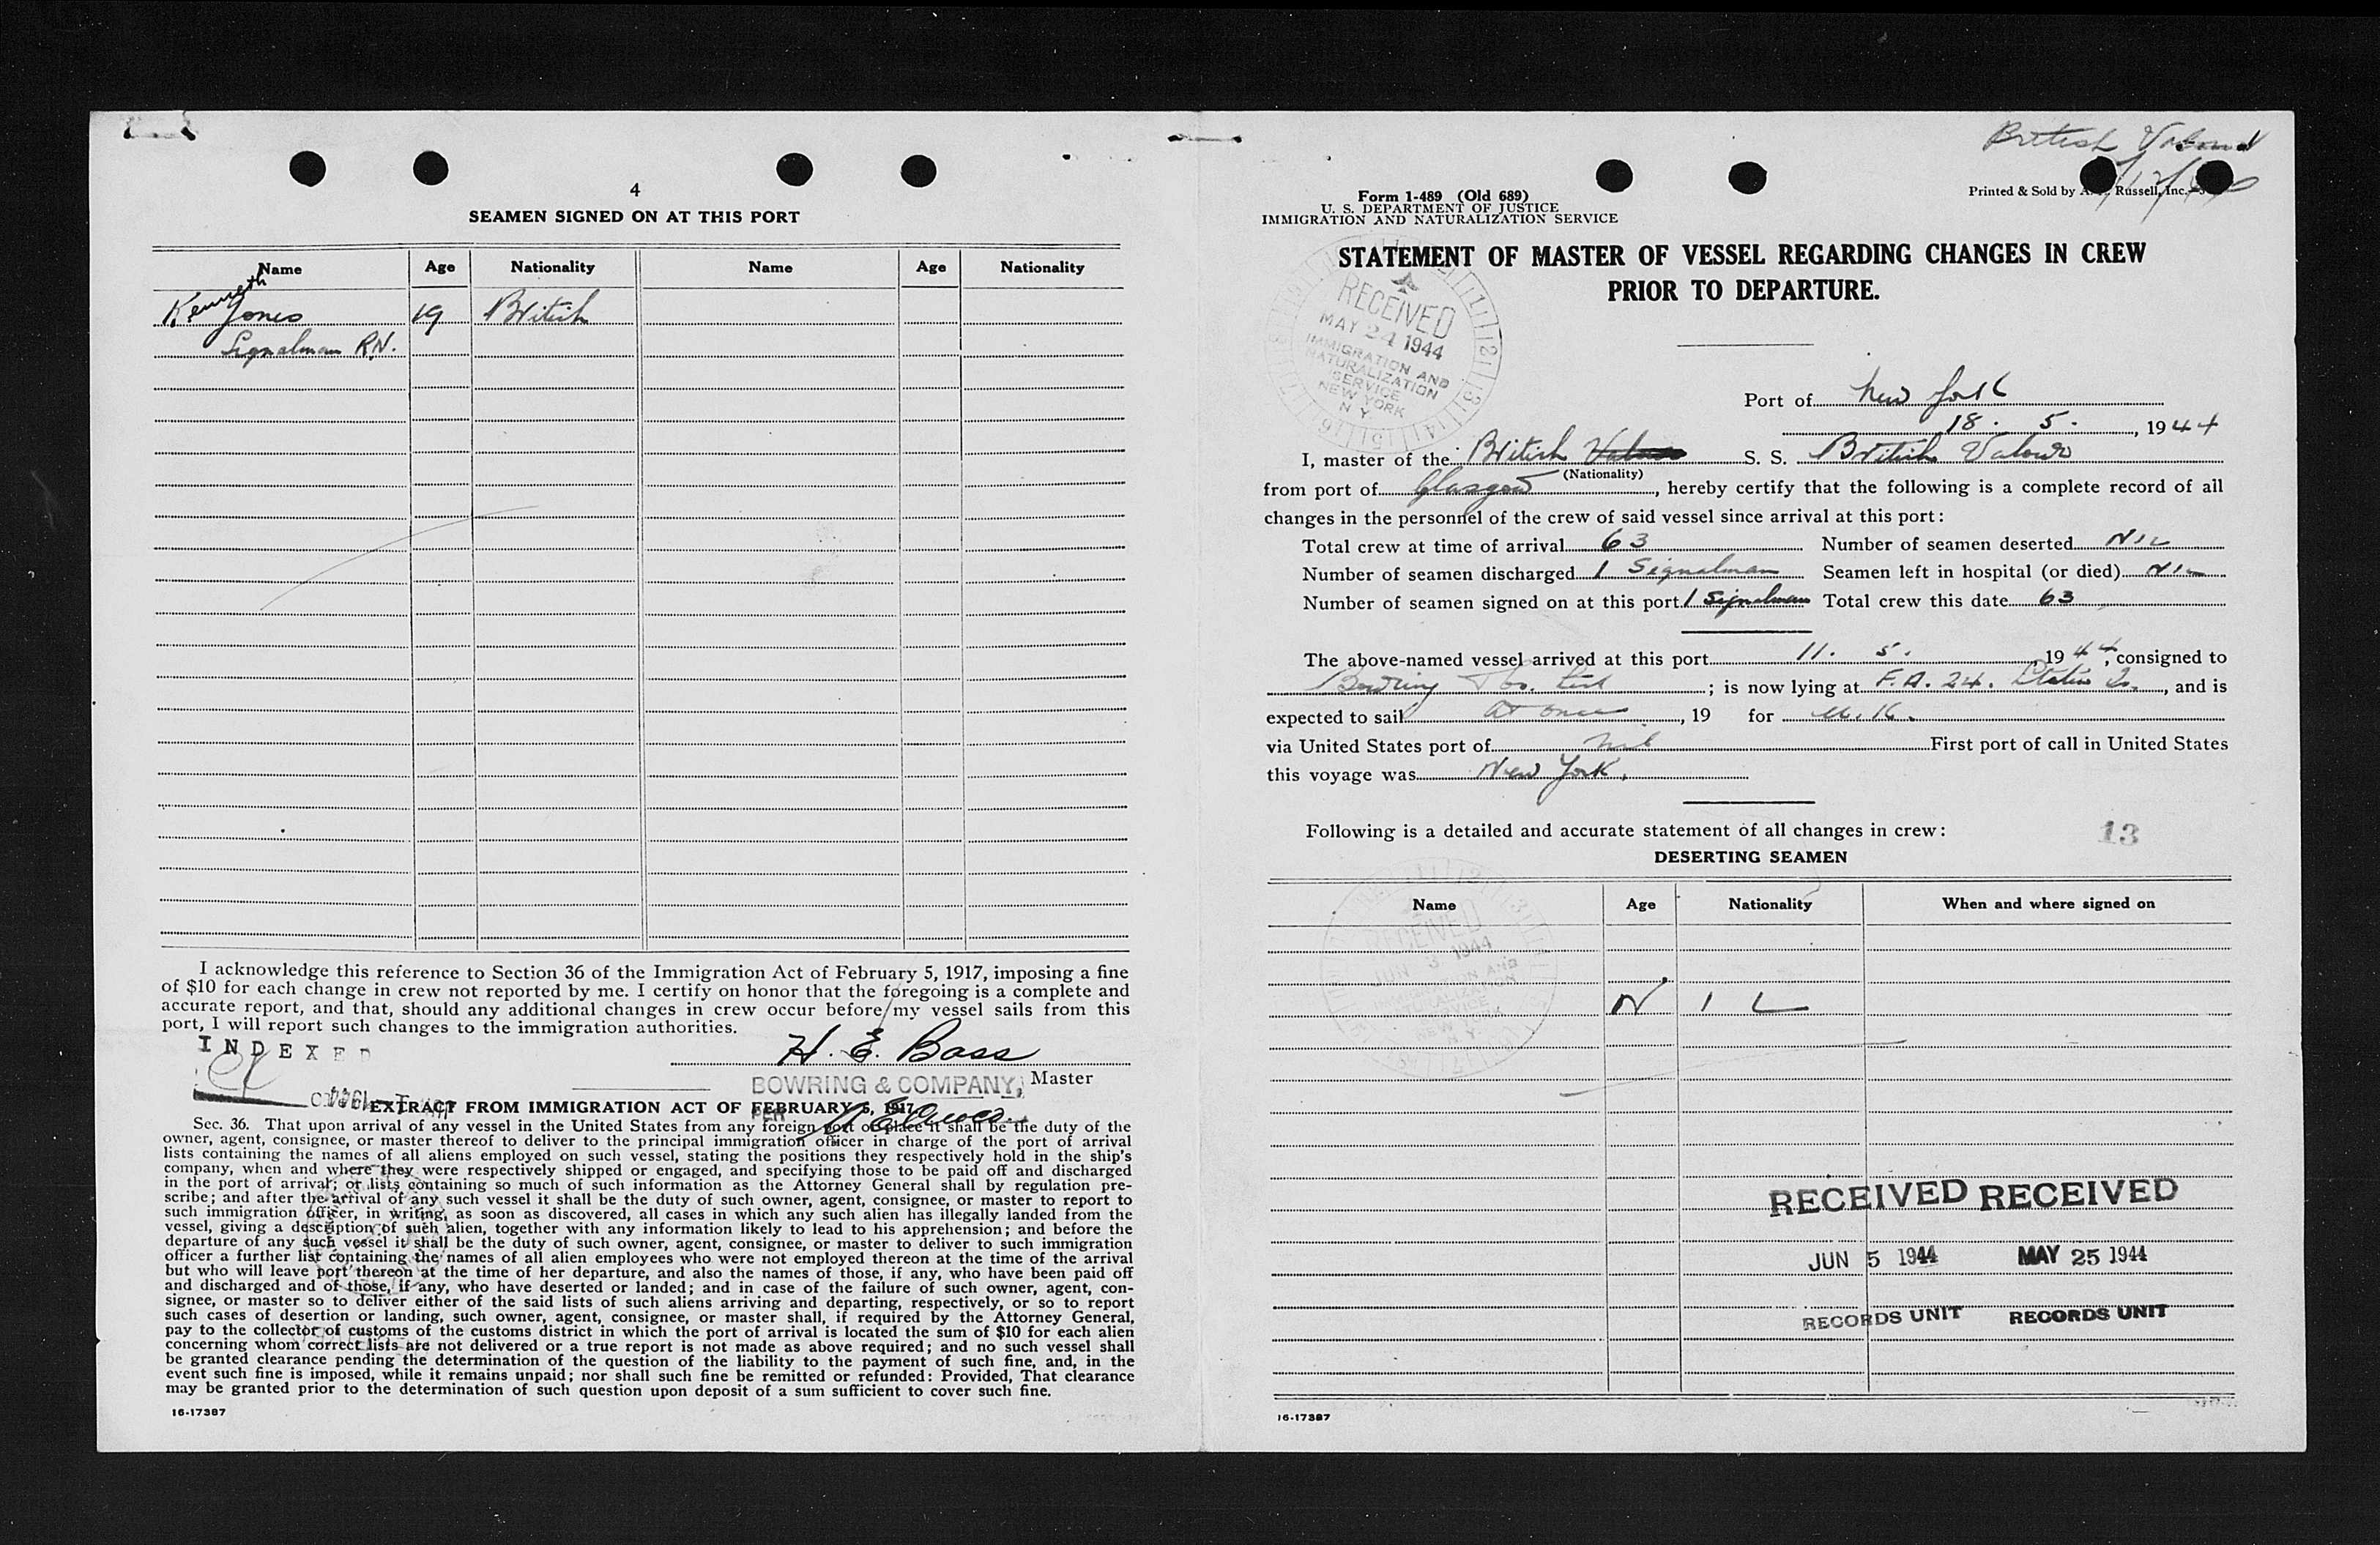 4
SEAMEN SIGNED ON AT THIS PORT
Name Age Nationality Name Age Nationality
Kenneth
Jones 19 British
Signalman R.N.
I acknowledge this reference to Section 36 of the Immigration Act of February 5, 1917, imposing a fine
of $10 for each change in crew not reported by me. I certify on honor that the foregoing is a complete and
accurate report, and that, should any additional changes in crew occur before my vessel sails from this
port, I will report such changes to the immigration authorities.
INDEXED
H. E. Bass
Master
BOWRING & COMPANY,
PER
EXTRACT FROM IMMIGRATION ACT OF FEBRUARY 5, 1917
Sec. 36. That upon arrival of any vessel in the United States from any foreign port or place it shall be the duty of the
owner, agent, consignee, or master thereof to deliver to the principal immigration officer in charge of the port of arrival
lists containing the names of all aliens employed on such vessel, stating the positions they respectively hold in the ship's
company, when and where they were respectively shipped or engaged, and specifying those to be paid off and discharged
in the port of arrival; or lists containing so much of such information as the Attorney General shall by regulation pre-
scribe; and after the arrival of any such vessel it shall be the duty of such owner, agent, consignee, or master to report to
such immigration officer, in writing, as soon as discovered, all cases in which any such alien has illegally landed from the
vessel, giving a description of such alien, together with any information likely to lead to his apprehension; and before the
departure of any such vessel it shall be the duty of such owner, agent, consignee, or master to deliver to such immigration
officer a further list containing the names of all alien employees who were not employed thereon at the time of the arrival
but who will leave port thereon at the time of her departure, and also the names of those, if any, who have been paid off
and discharged and of those, if any, who have deserted or landed; and in case of the failure of such owner, agent, con-
signee, or master so to deliver either of the said lists of such aliens arriving and departing, respectively, or so to report
such cases of desertion or landing, such owner, agent, consignee, or master shall, if required by the Attorney General,
pay to the collector of customs of the customs district in which the port of arrival is located the sum of $10 for each alien
concerning whom correct lists are not delivered or a true report is not made as above required; and no such vessel shall
be granted clearance pending the determination of the question of the liability to the payment of such fine, and, in the
event such fine is imposed, while it remains unpaid; nor shall such fine be remitted or refunded: Provided, That clearance
may be granted prior to the determination of such question upon deposit of a sum sufficient to cover such fine.
16-17387
British
Form 1-489 (Old 689)
U. S. DEPARTMENT OF JUSTICE
IMMIGRATION AND NATURALIZATION SERVICE
Printed & Sold by Russell, Inc.
STATEMENT OF MASTER OF VESSEL REGARDING CHANGES IN CREW
PRIOR TO DEPARTURE.
RECEIVED
MAY 24 1944
IMMIGRATION AND
NATURALIZATION
SERVICE
NEW YORK
N Y
Port of New York
18. 5. , 1944
I, master of the British S. S. British Valour
(Nationality)
from port of Glasgow, hereby certify that the following is a complete record of all
changes in the personnel of the crew of said vessel since arrival at this port:
Total crew at time of arrival 63 Number of seamen deserted NIL
Number of seamen discharged 1 Signalman Seamen left in hospital (or died) NIL
Number of seamen signed on at this port 1 Signalman Total crew this date 63
The above-named vessel arrived at this port 11. 5. 1944, consigned to
Bowring & Co. Ltd ; is now lying at F.A. 24. , and is
expected to sail at once , 19 for U.K.
via United States port of nil First port of call in United States
this voyage was New York.
Following is a detailed and accurate statement of all changes in crew: 13
DESERTING SEAMEN
Name Age Nationality When and where signed on
RECEIVED
JUN 3 1944
N I L
RECEIVED RECEIVED
JUN 5 1944 MAY 25 1944
RECORDS UNIT RECORDS UNIT
16-17387